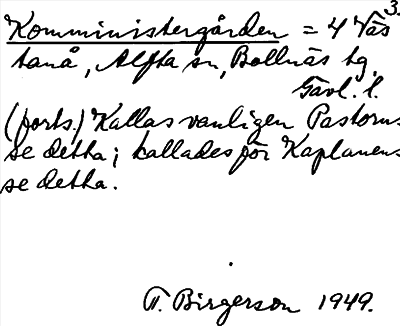 3.
Komministergården = 4 Näs
tanå, Alfta sn, Bollnäs tg.
Gävl. l.
(forts.) Kallas vanligen Pastorns
se detta; kallades förr Kaplanens
se detta.
T. Birgerson 1949.